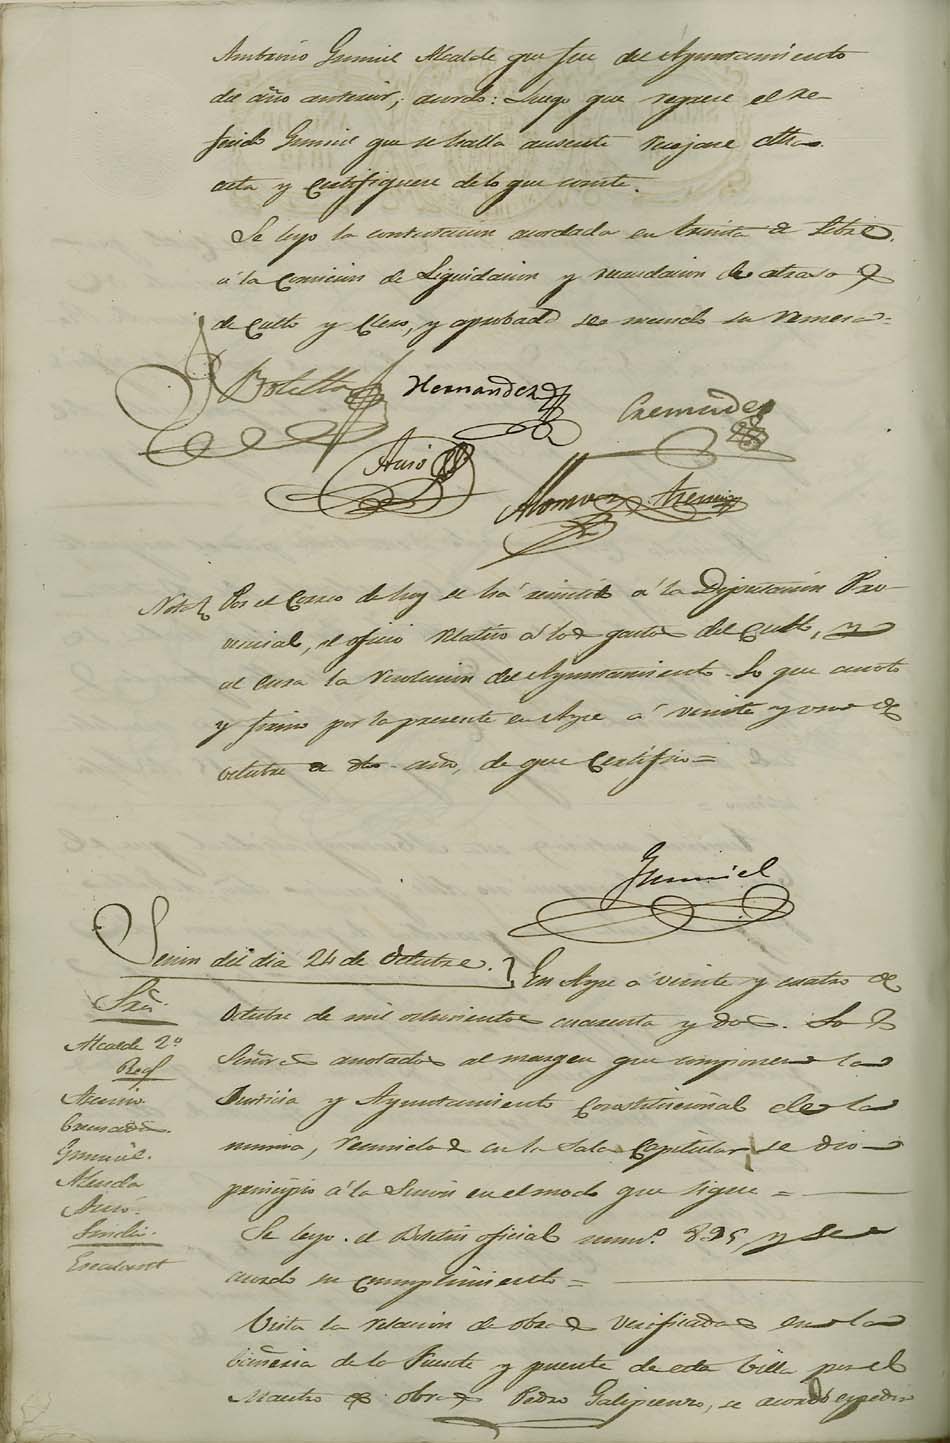 Antonio Gumiel Alcalde que fue del Ayuntamiento
del año anterior, acordó: Luego que regrese el re-
ferido Gumiel que se halla ausente
acta y Certifiquese de lo que conste.
Se leyo la contestacion acordada en treinta de
á la Comision de Liquidacion y recaudacion de atrasos
de Culto y Clero, y aprobada se mandó su remesa=
Botella Hernandez
Cremades
Auso
Asensio
Nota Por el Correo de hoy se há remitido á la Diputacion Pro-
vincial, el oficio relativo á los gastos del Culto, y
al Cura la resolucion del Ayuntamiento. Lo que anoto
y firmo por la presente en Aspe á veinte y uno de
octubre de dho. año, de que Certifico=
Gumiel
Sesion del dia 24 de Octubre.
En Aspe á veinte y cuatro de
Octubre de mil ochocientos cuarenta y dos. Los
Señores anotados al margen que componen la
Justicia y Ayuntamiento Constitucional de la
misma, reunidos en la Sala Capitular se dio
principio á la Sesion en el modo que sigue=
Sres.
Alcalde 2º
Asensio
Cremades
Gumiel
Auso
Sindico
Escalant
Se leyo el Boletin oficial num.º 895, y se
acordó su cumplimiento=
Vista la relacion de obras verificadas en la
cañeria de la Fuente y puente de esta Villa por el
Maestro de obras Pedro Galipienzo, se acordó expedir